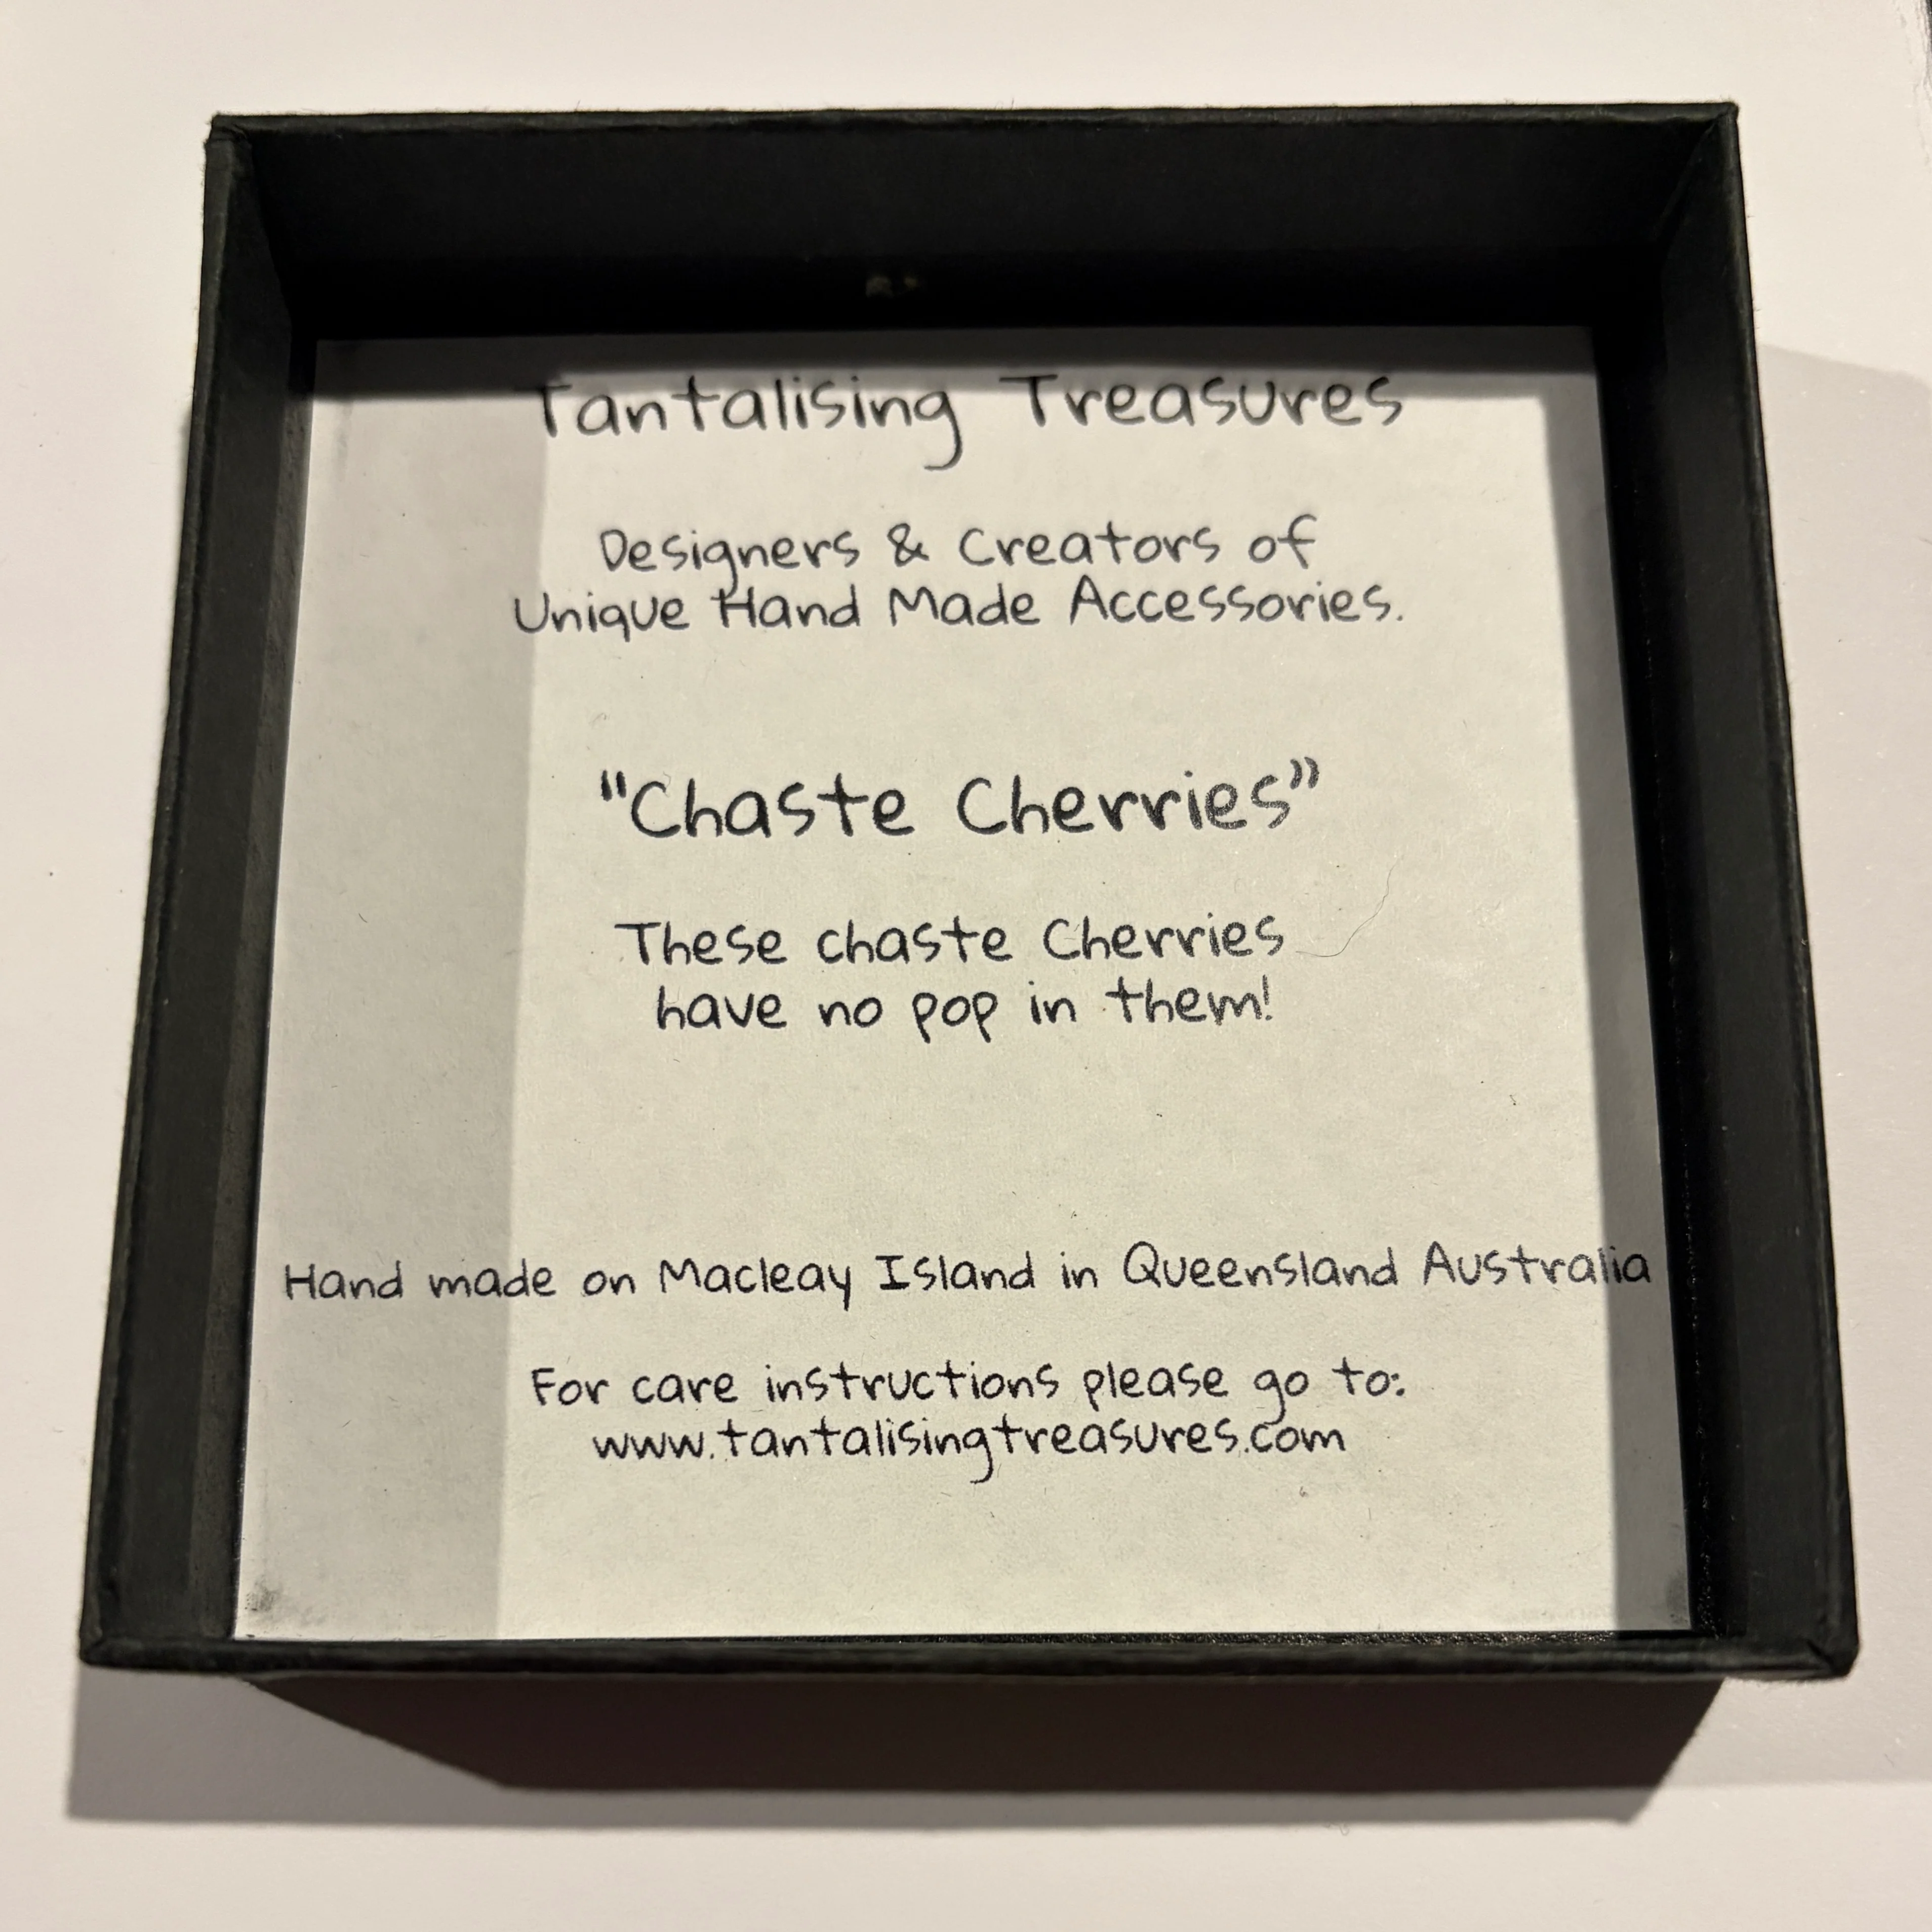 Tantalising Treasures
Designers & Creators of
Unique Hand Made Accessories.
"Chaste Cherries"
These chaste Cherries
have no pop in them!
Hand made on Macleay Island in Queensland Australia
For care instructions please go to:
www.tantalisingtreasures.com